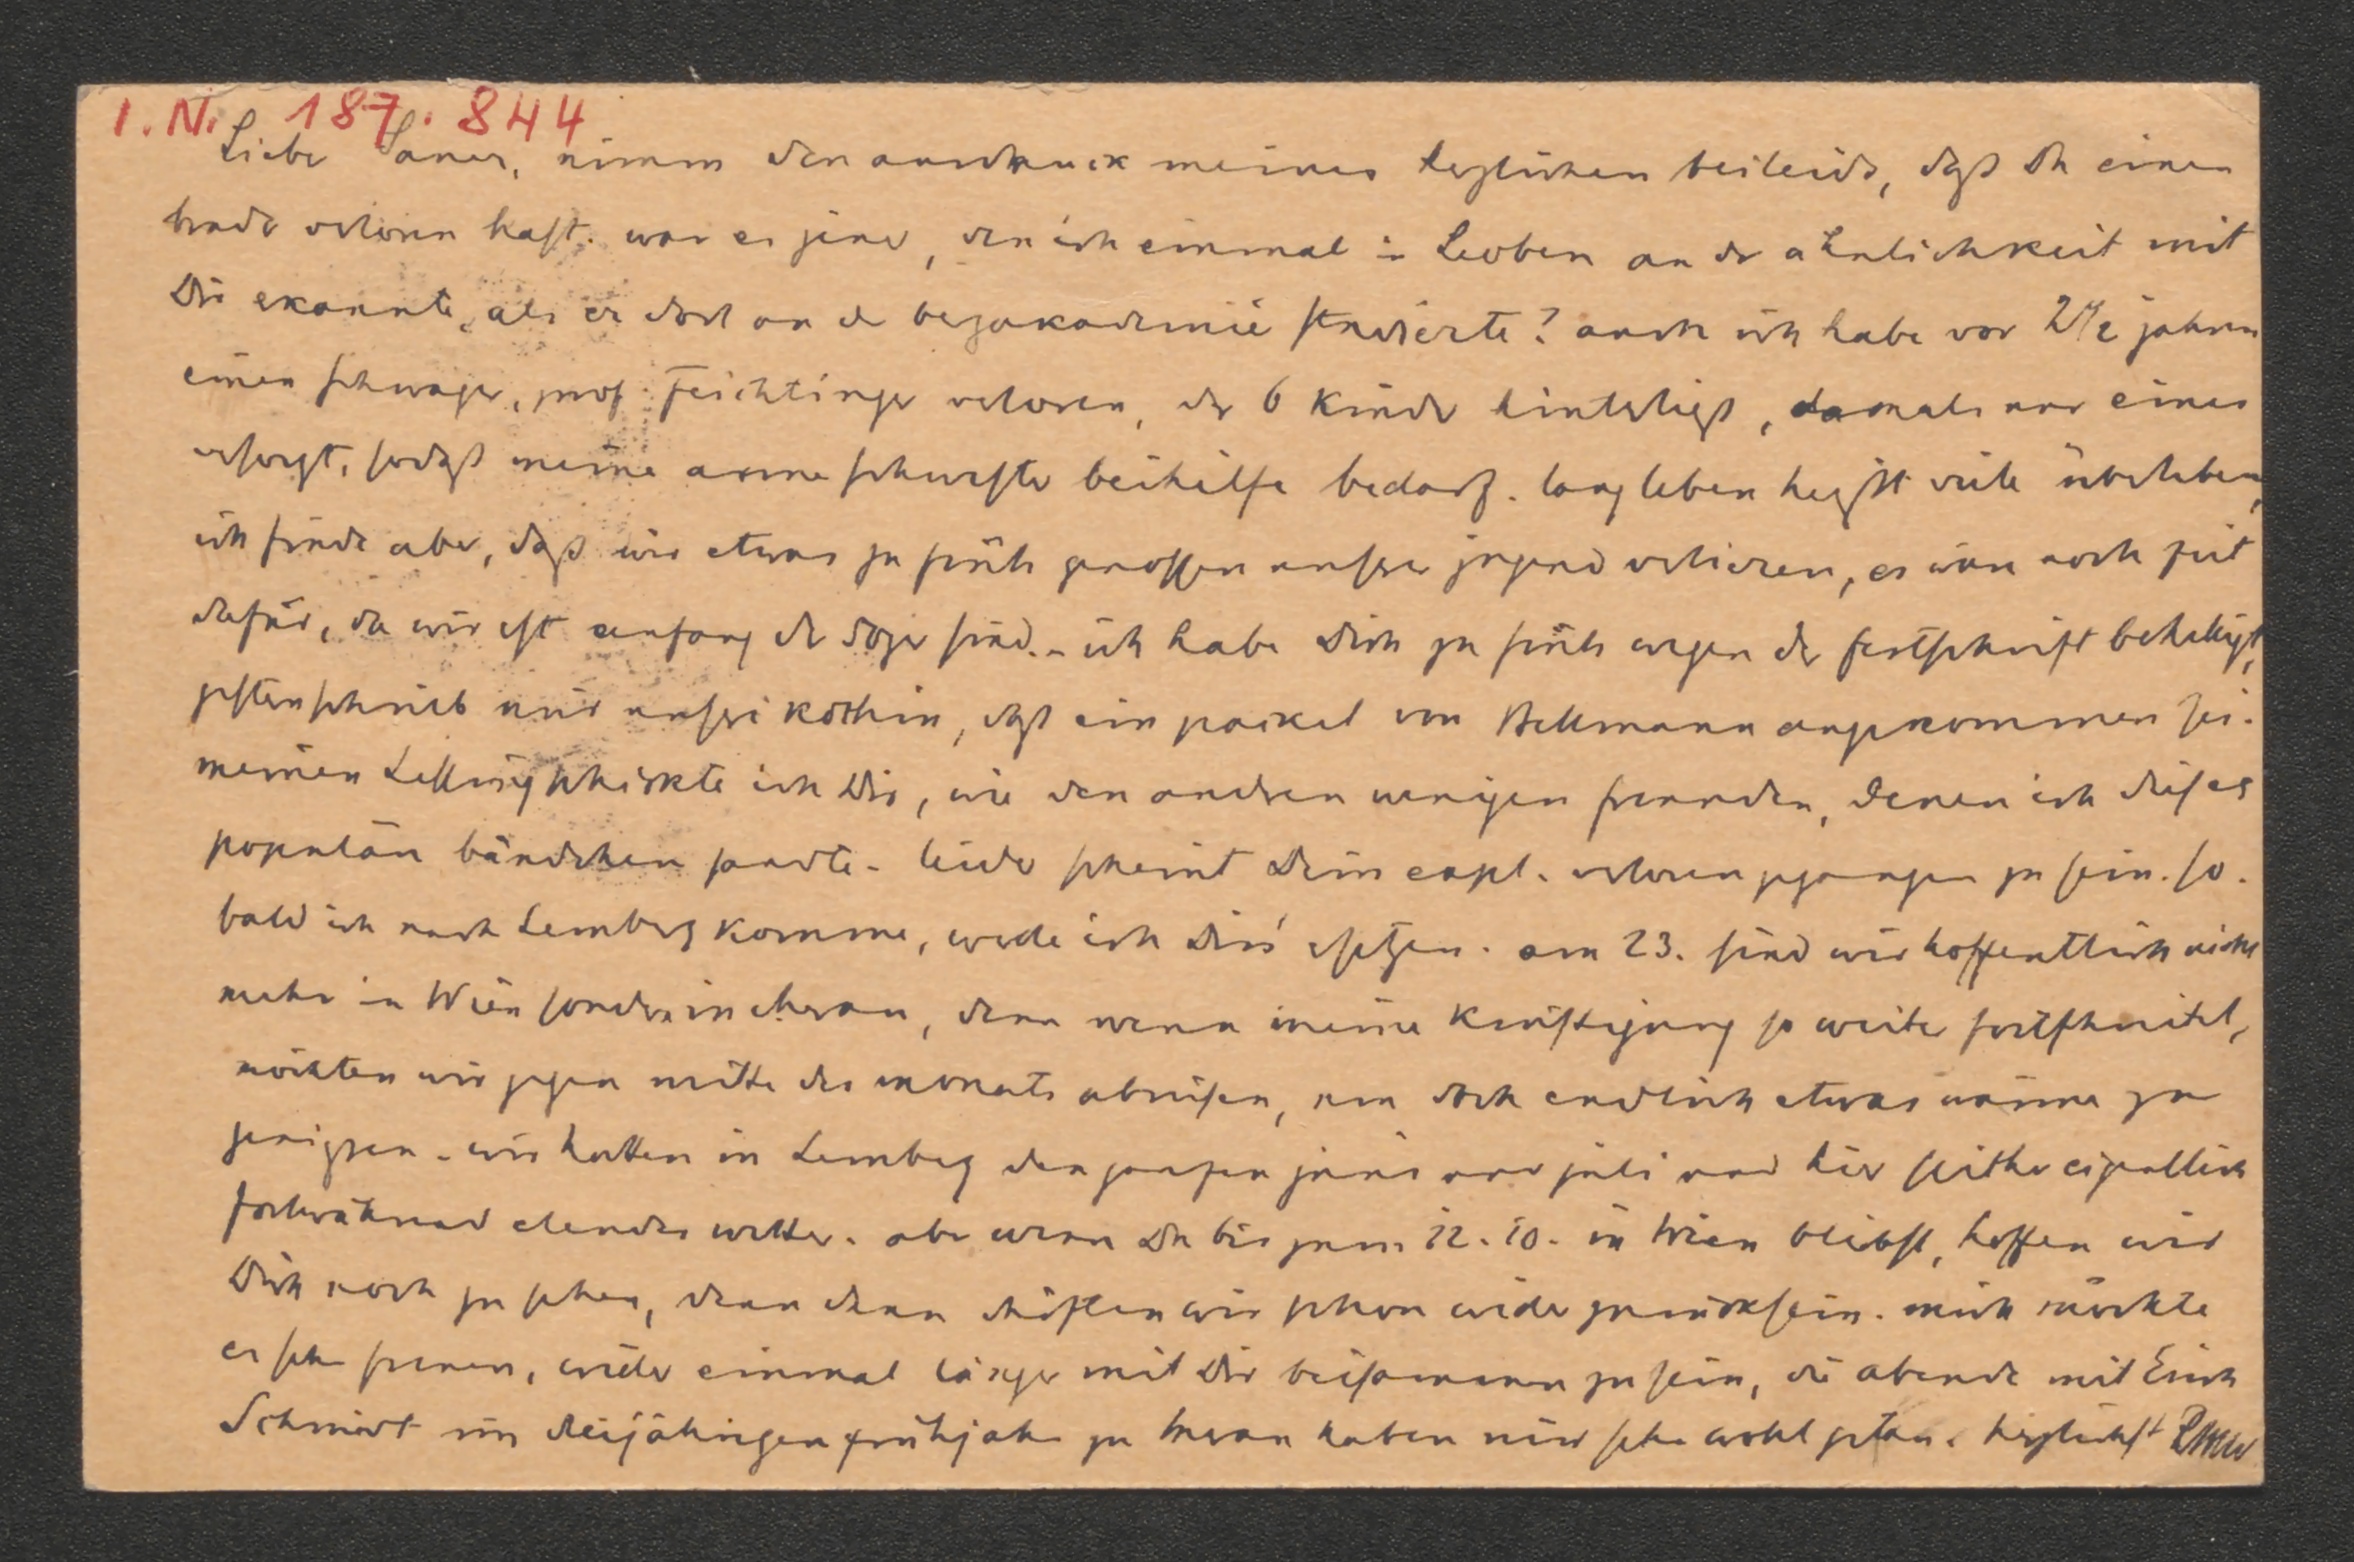 I. N. 187.844
Lieber Sauer, nimm den ausdruck meines herzlichen beileids, daß Du einen
bruder verloren hast. war es jener, den ich einmal in Leoben an der ähnlichkeit mit
Dir erkannte, als er dort an der bergakademie studierte? auch ich habe vor 2 1/2 jahren
einen schwager, prof. Feichtinger verloren, der 6 Kinder hinterließ, damals nur eines
versorgt, sodaß meine arme schwester beihilfe bedarf. lang leben heißt viele überleben,
ich finde aber, daß wir etwas zu früh genossen unserer jugend verlieren, es wäre noch zeit
dafür, da wir erst anfang der 50ger sind. – ich habe Dich zu früh wegen der festschrift behelligt,
gestern schrieb mir unsere köchin, daß ein packet von Hellmann angekommen sei.
meinen Lessing schickte ich Dir, wie den anderen wenigen freunden, denen ich dieses
populäre bändchen sandte. leider scheint Dein expl. verloren gegangen zu sein. so-
bald ich nach Lemberg komme, werde ich Dir's ersetzen. am 23. sind wir hoffentlich nicht
mehr in Wien sondern in Meran, denn wenn meine Kräftigung so weiter fortschreitet,
möchten wir gegen mitte des monats abreisen, um doch endlich etwas wärme zu
genießen. wir hatten in Lemberg den ganzen juni und juli und hier seither eigentlich
fortwährend elendes wetter. aber wenn Du bis zum 12. 10. in Wien bleibst, hoffen wir
Dich noch zu sehen, denn dann dürften wir schon wieder zurücksein. mich würde
es sehr freuen, wieder einmal länger mit Dir beisammen zu sein, die abende mit Erich
Schmidt im diesjährigen frühjahr zu Meran haben mir sehr wohl getan. herzlichst